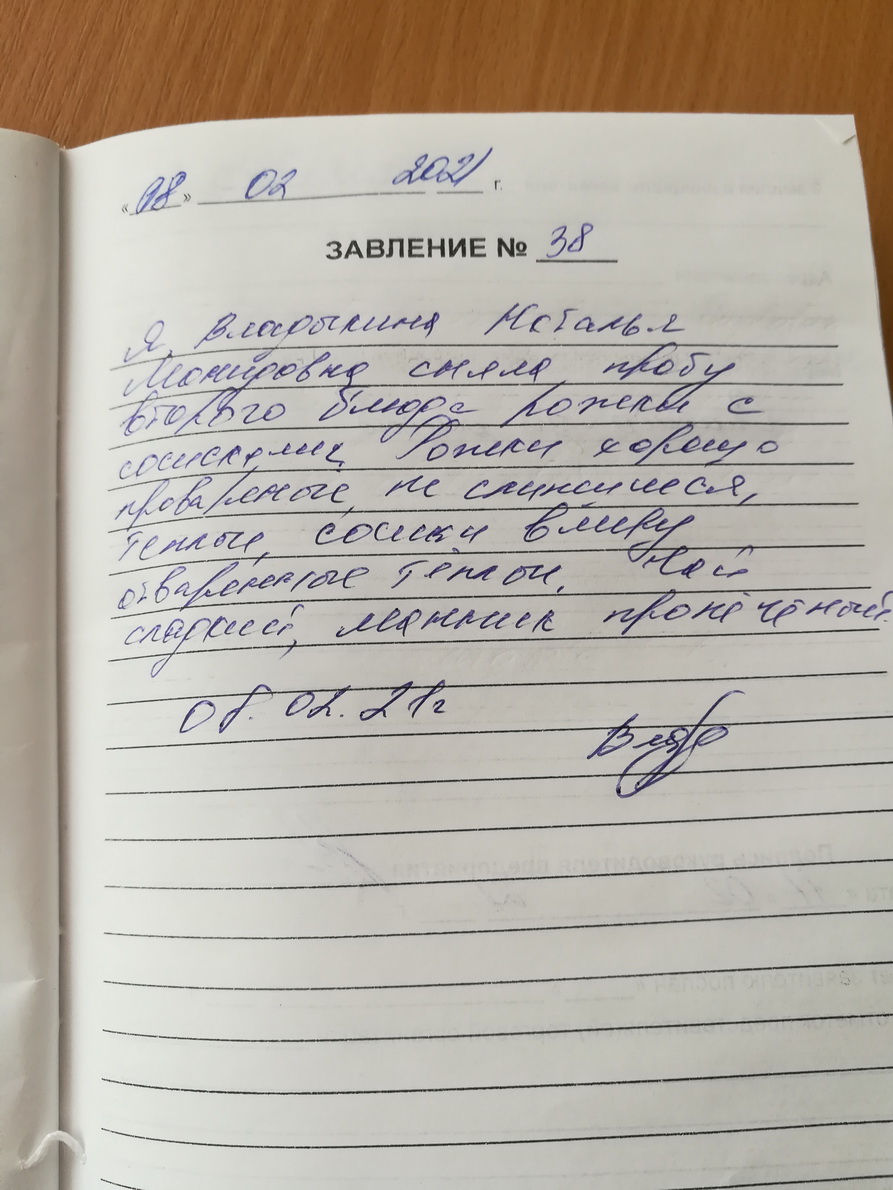 «08» 02 2021 г.
ЗАВЛЕНИЕ № 38
Я, Владыкина Наталья
сняла пробу
второго блюда рожки с
сосисками. Рожки хорошо
проваренные, не слипшиеся,
теплые, сосики в меру
отваренные тёплые. Чай
сладкий, манник пропечёный.
08.02.21г